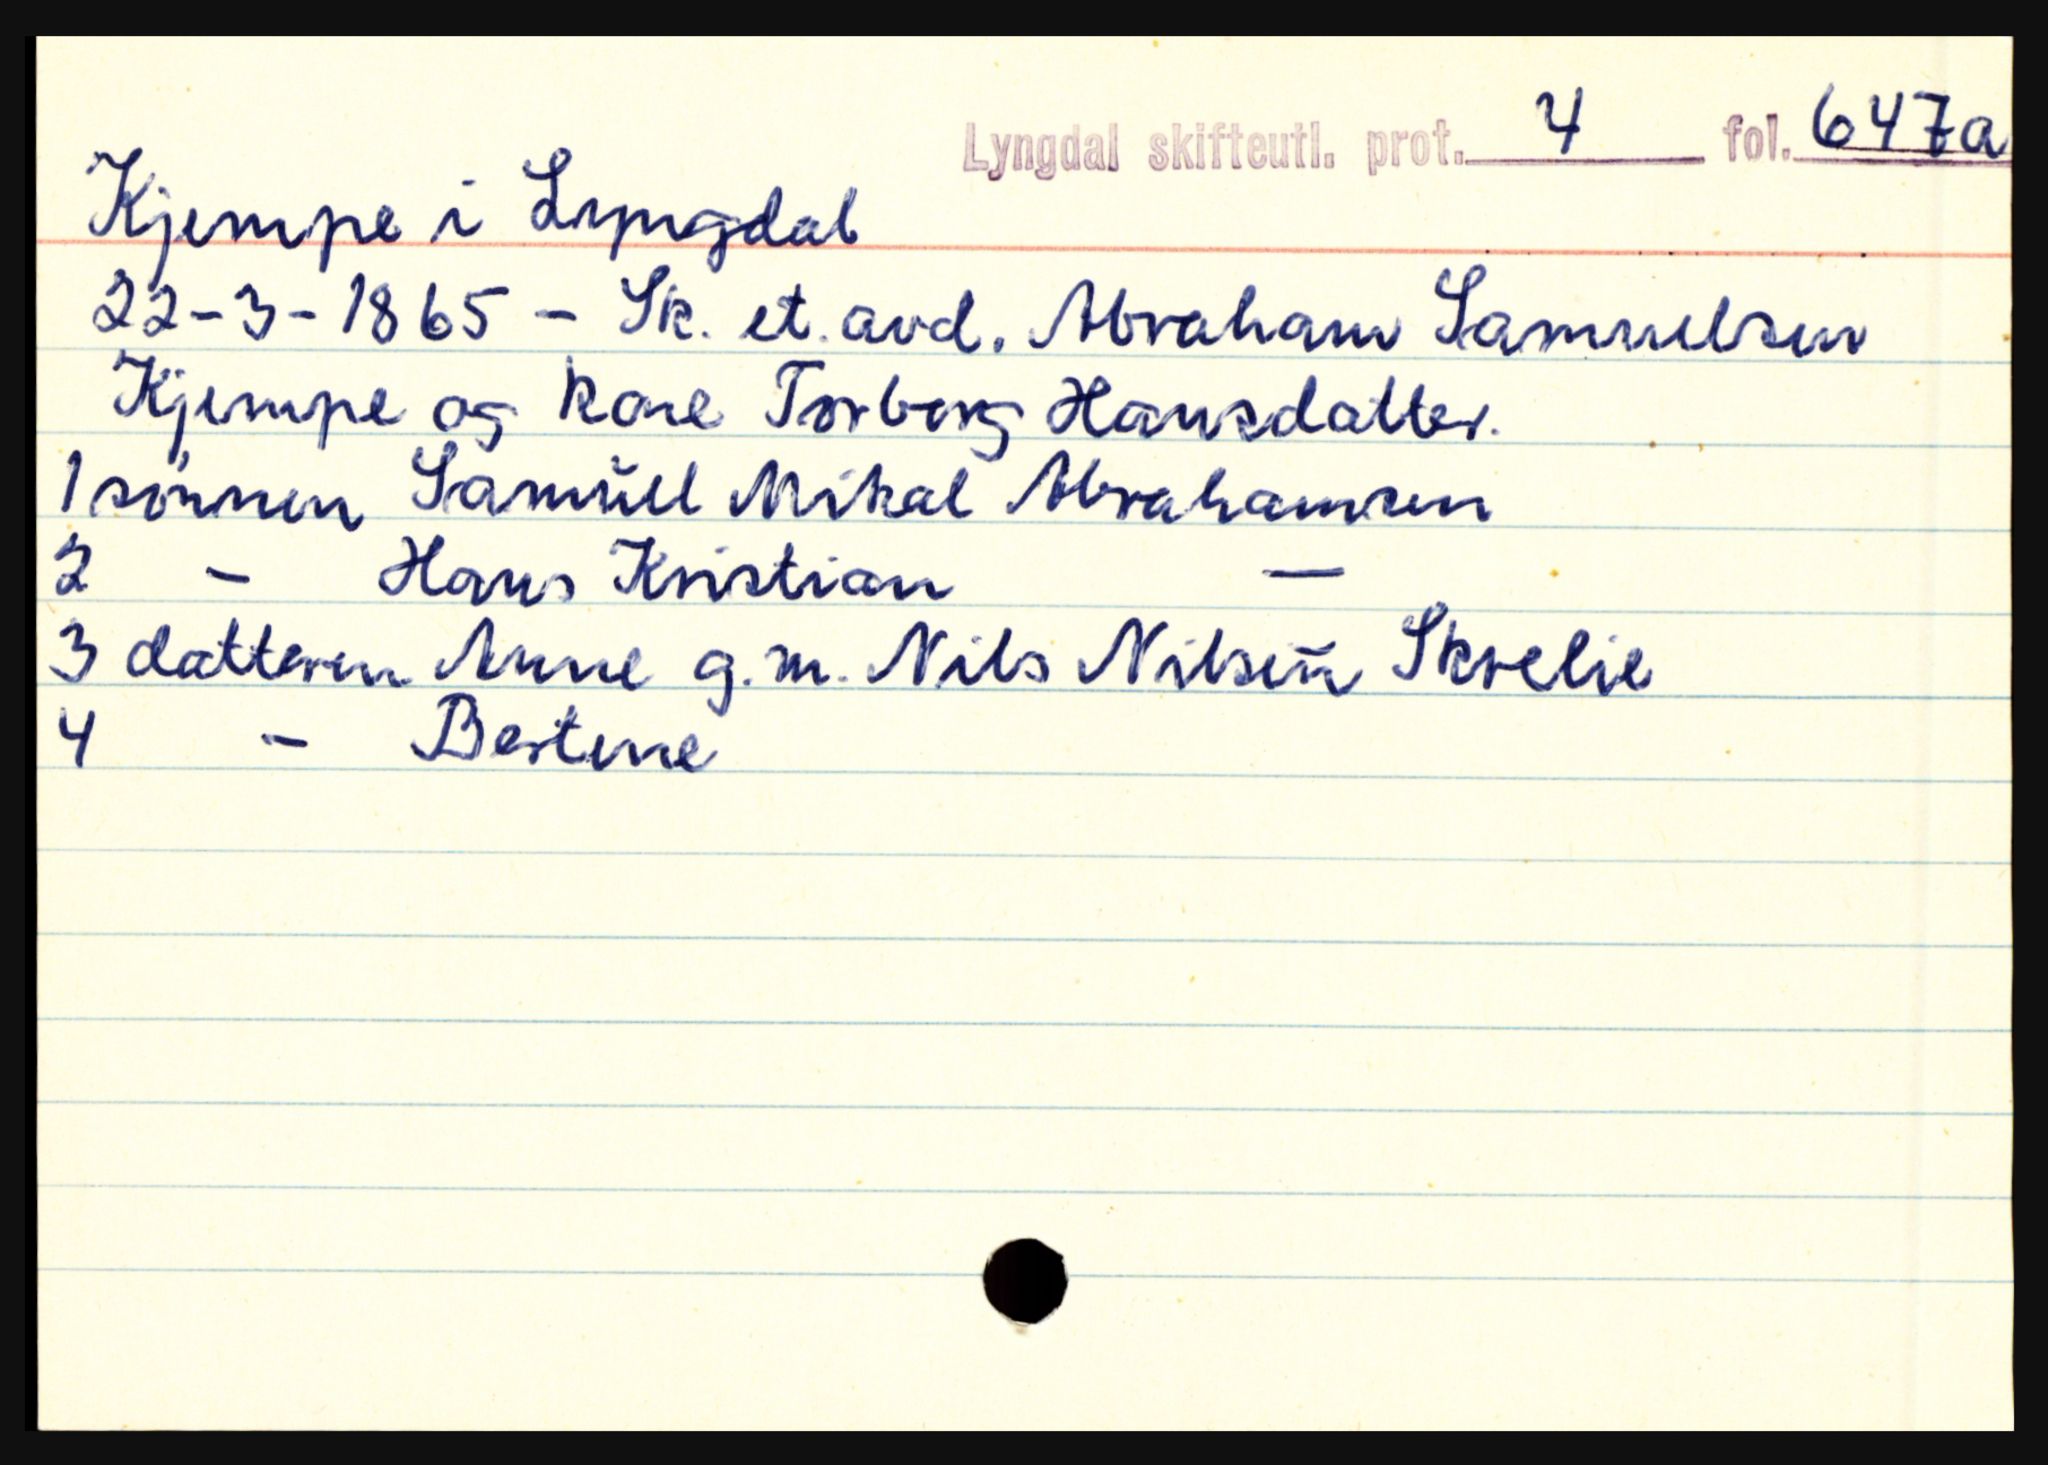 Lyngdal skifteutl. prot. 4 fol. 647a
Kjempe i Lyngdal
22-3-1865 - Sk. et. avd. Abraham Samuelsen
Kjempe og kone Torborg Hansdatter.
1 sønnen Samuel Mikal Abrahamsen
2 - Hans Kristian —
3 datteren Anne g.m. Nils Nilsen Skrelie
4 - Bertine